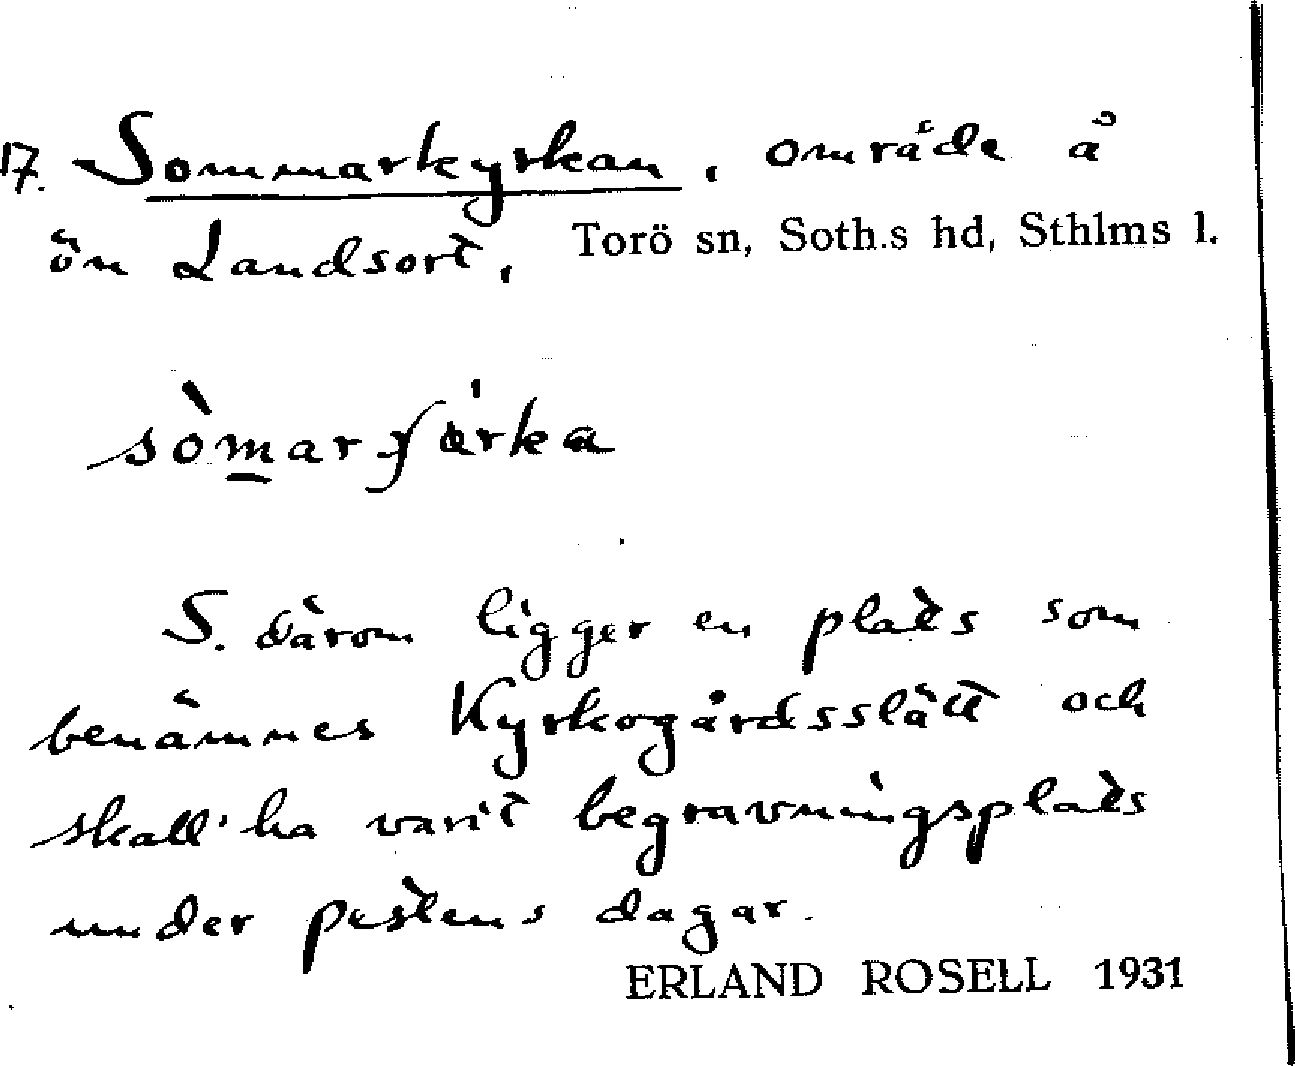 17. Sommarkyrkan, område å
ön Landsort, Torö sn, Soth.s hd, Sthlms l.
sòmarʃɑ́rka
S. därom ligger en plats som
benämnes Kyrkogårdsslätt och
skall ha varit begravningsplats
under pestens dagar.
ERLAND ROSELL 1931